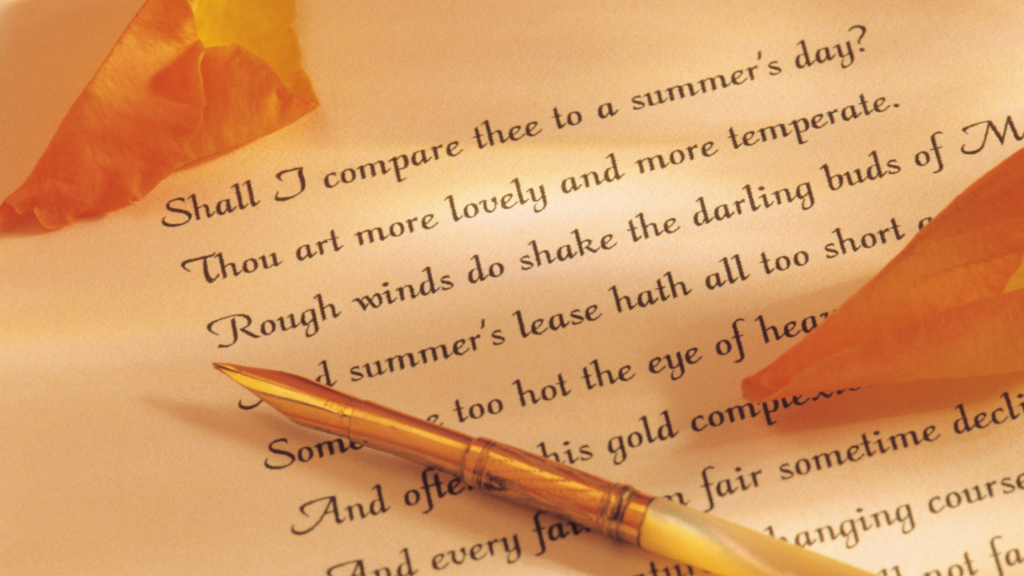 Shall I compare thee to a summer's day?
Thou art more lovely and more temperate.
Rough winds do shake the darling buds of M
d summer's lease hath all too short
Some too hot the eye of hea
And ofte his gold complex
And every fai n fair sometime decli
hanging course
not fa